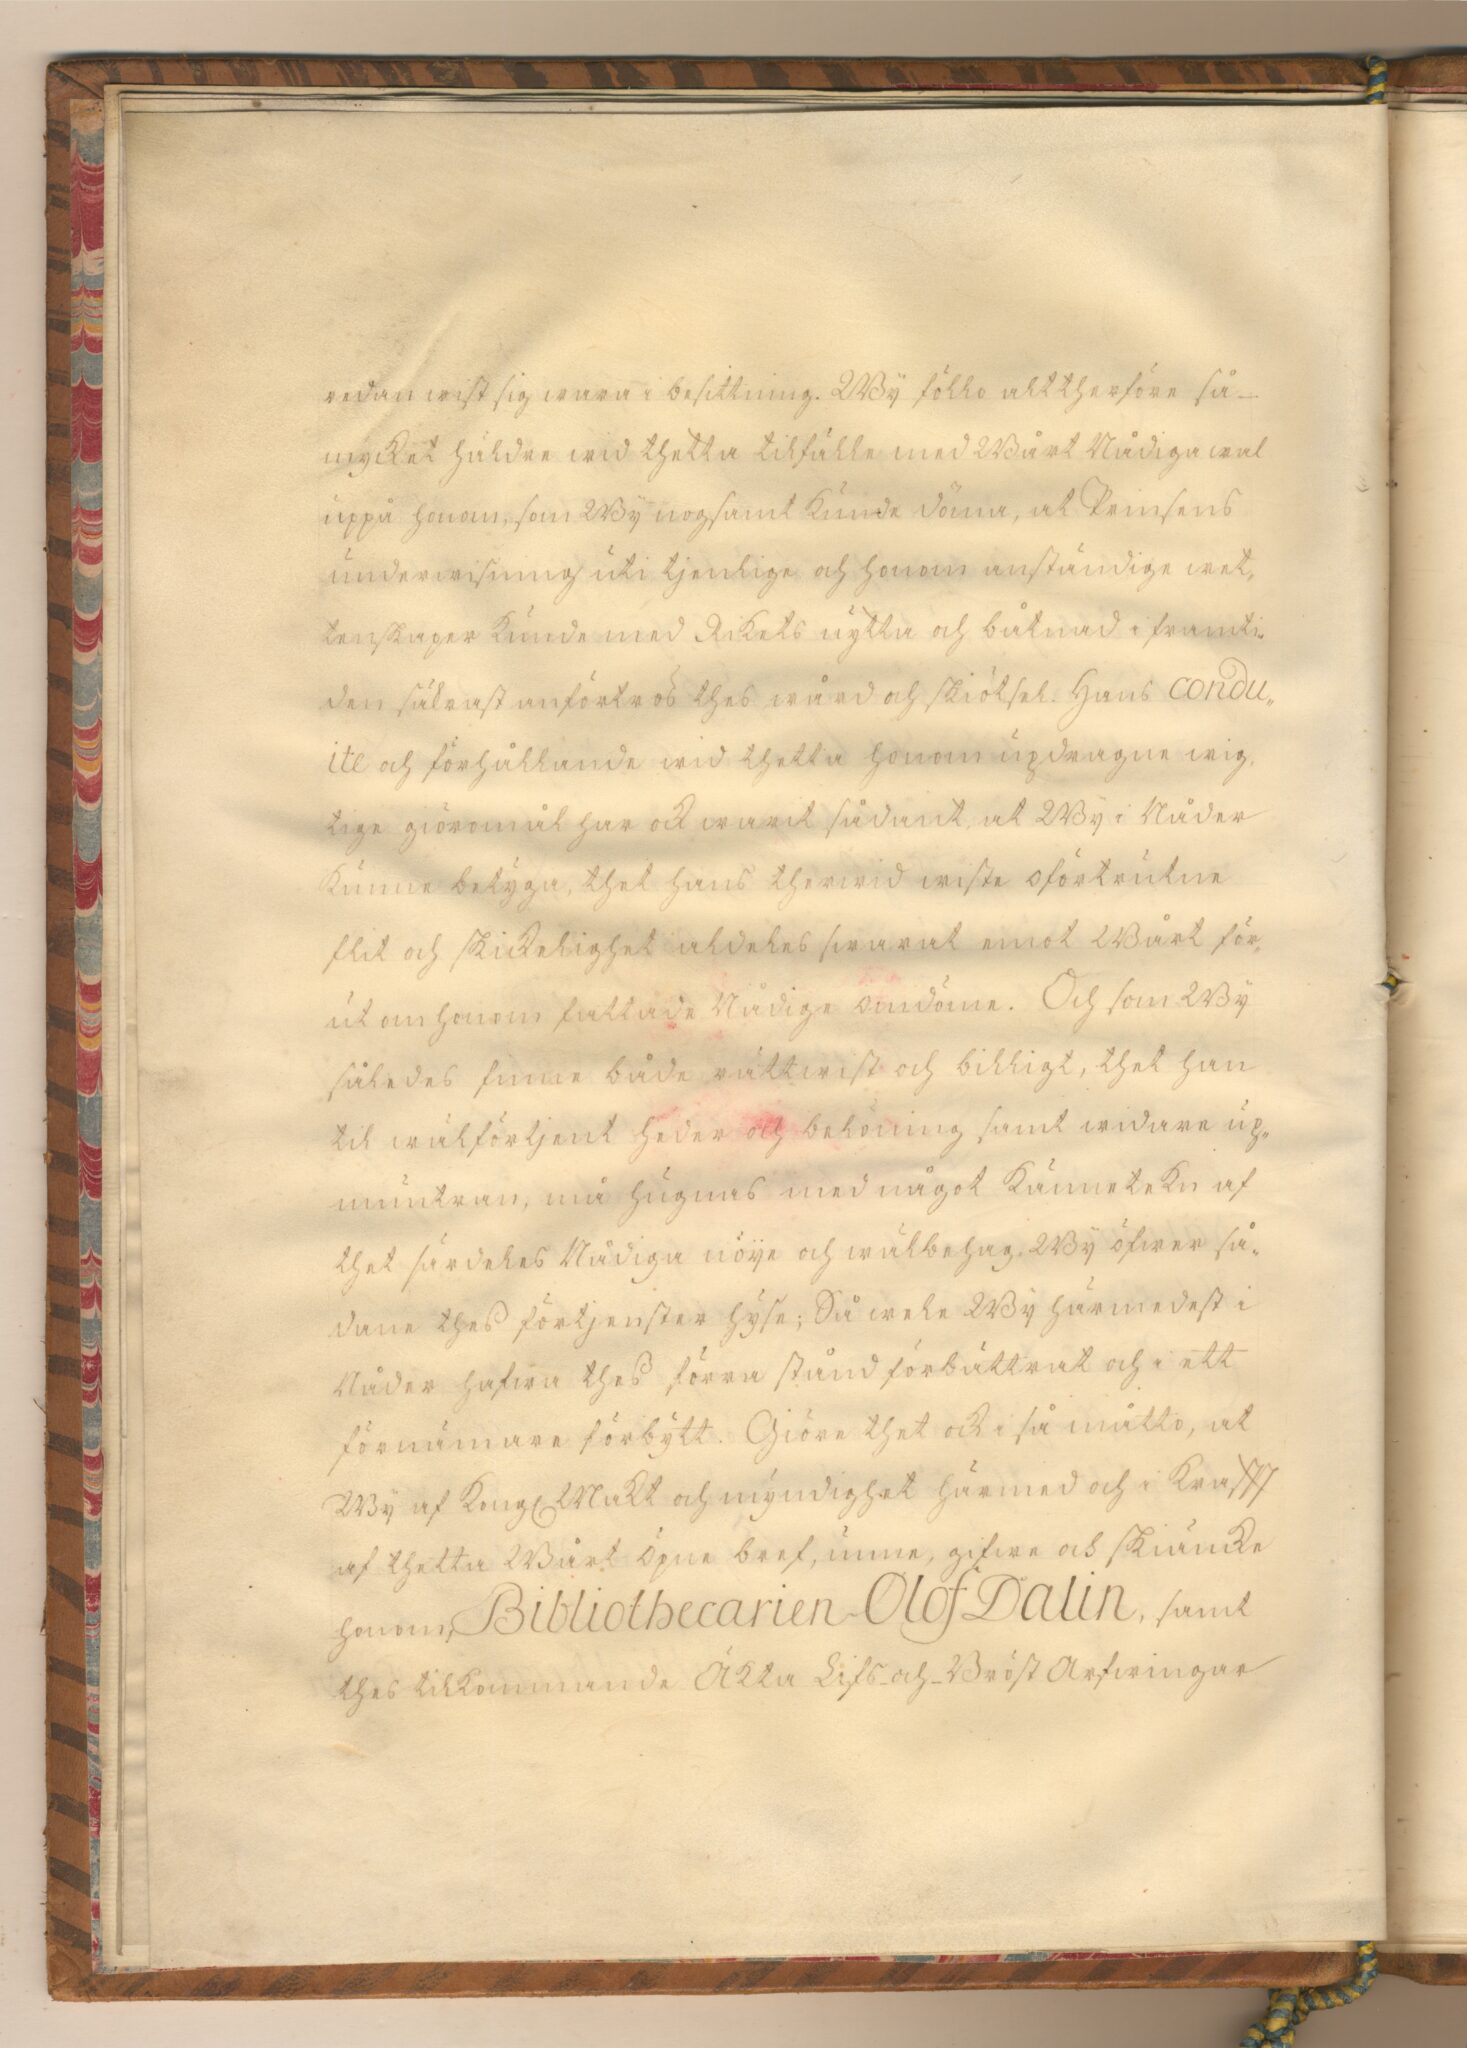 redan wist sig wara i besittning. Wÿ föllo alt therföre så-
mycket häldre wid thetta tilfälle med Wårt Nådiga wal
uppå honom, som Wÿ nogsamt kunde döma, at Prinsens
underwisning uti tjenlige och honom anständige wet-
tenskaper kunde med Rikets nytta och båtnad i framti-
den säkrast anförtros thes wård och skiötsel. Hans condu-
ite och förhållande wid thetta honom updragne wig-
tige giöromål har ock warit sådant, at Wÿ i Nåder
kunne betyga, thet hans therwid wiste oförtrutne
flit och skickelighet aldeles swarat emot Wårt för-
ut om honom fattade Nådige omdöme. Och som Wÿ
således finne både rättwist och billigt, thet han
til wälförtjent heder och belöning samt widare up-
muntran, må hugnas med något känneteckn af
thet särdeles Nådiga nöye och wälbehag Wÿ öfwer så-
dane thes förtjenster hyse; Så wele Wÿ härmedest i
Nåder hafwa thes förra stånd förbättrat och i ett
förnämare förbytt. Giöre thet ock i så måtto, at
Wÿ af Kongl Makt och myndighet härmed och i krafft
af thetta Wårt öpne bref, unne, gifwe och skiäncke
honom, Bibliothecarien Olof Dalin, samt
thes tilkommande Äkta Lifs- och- Bröst Arfwingar